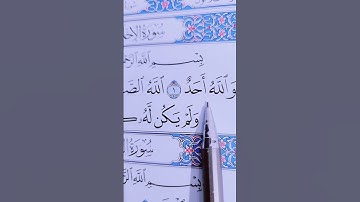 سُورَةُ الإِخ
بِسْمِ ٱللَّهِ ٱلرَّحْمَ
وَ ٱللَّهُ أَحَدٌ ١ ٱللَّهُ ٱلصَّ
وَلَمْ يَكُن لَّهُۥ ك
سُورَةُ
بِسْمِ ٱللَّهِ ٱلرَّ